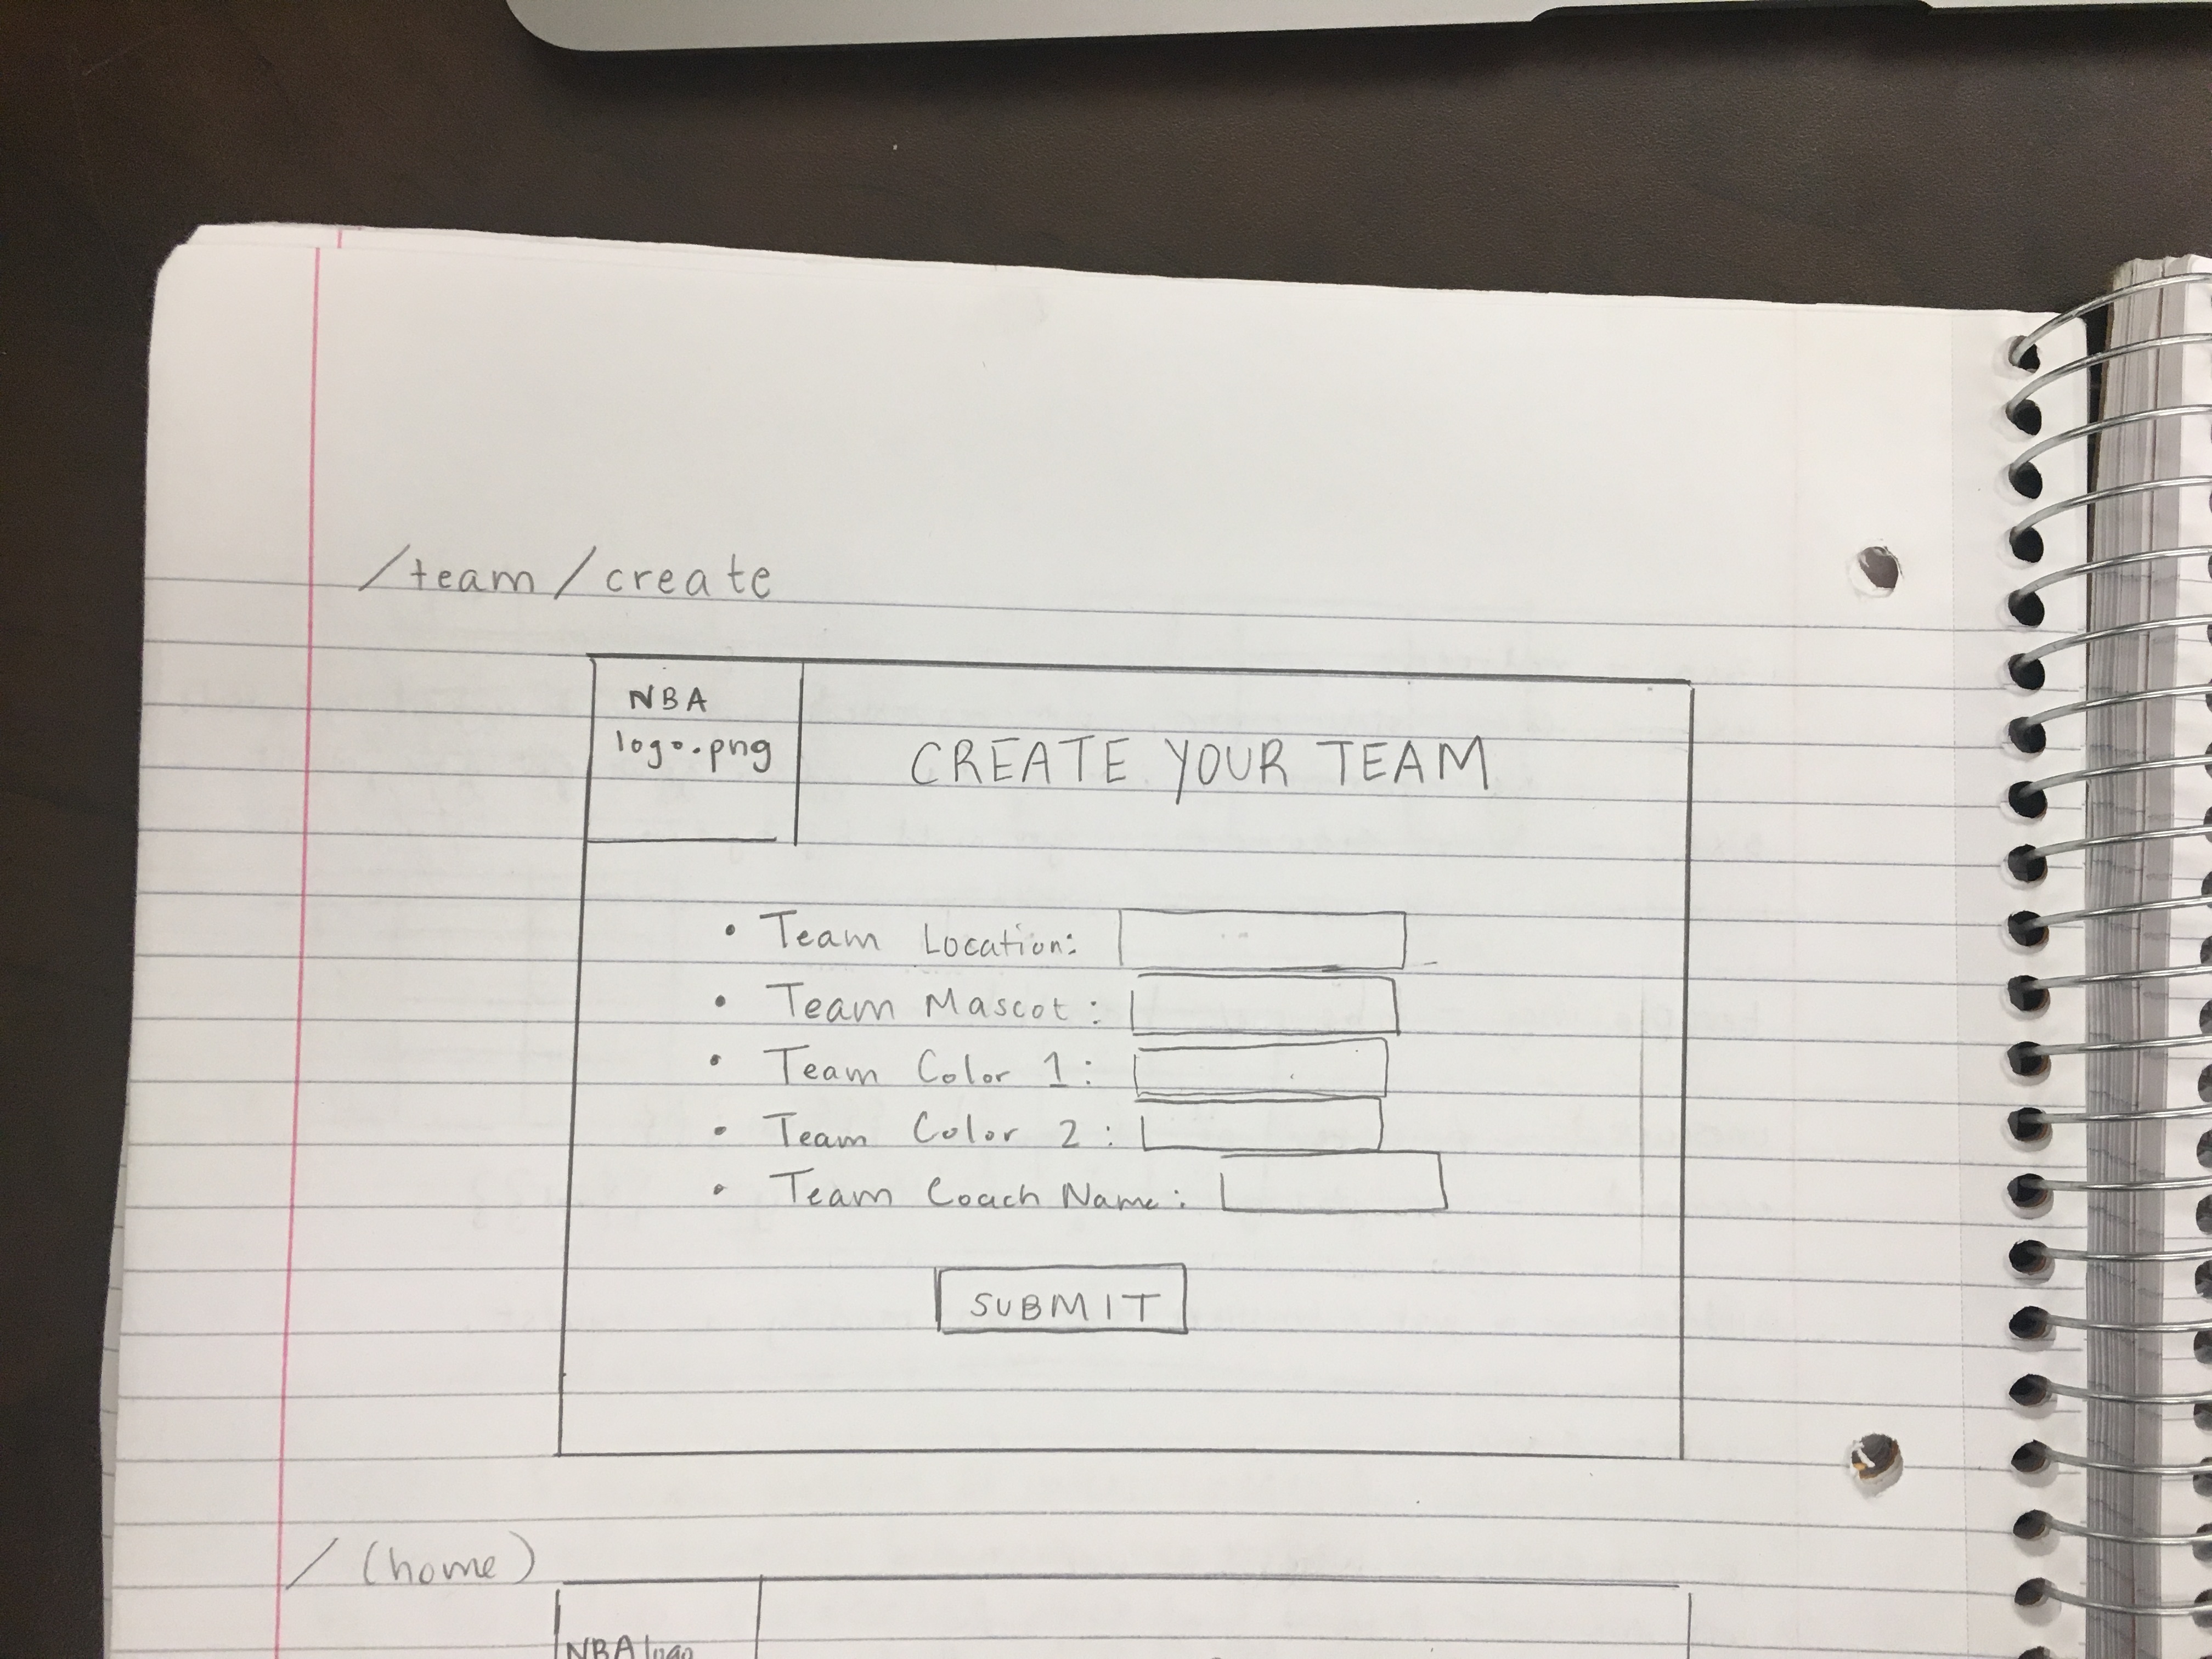 /team/create
NBA
logo.png
CREATE YOUR TEAM
• Team Location:
• Team Mascot:
• Team Color 1:
• Team Color 2:
• Team Coach Name:
SUBMIT
/ (home)
NBA logo